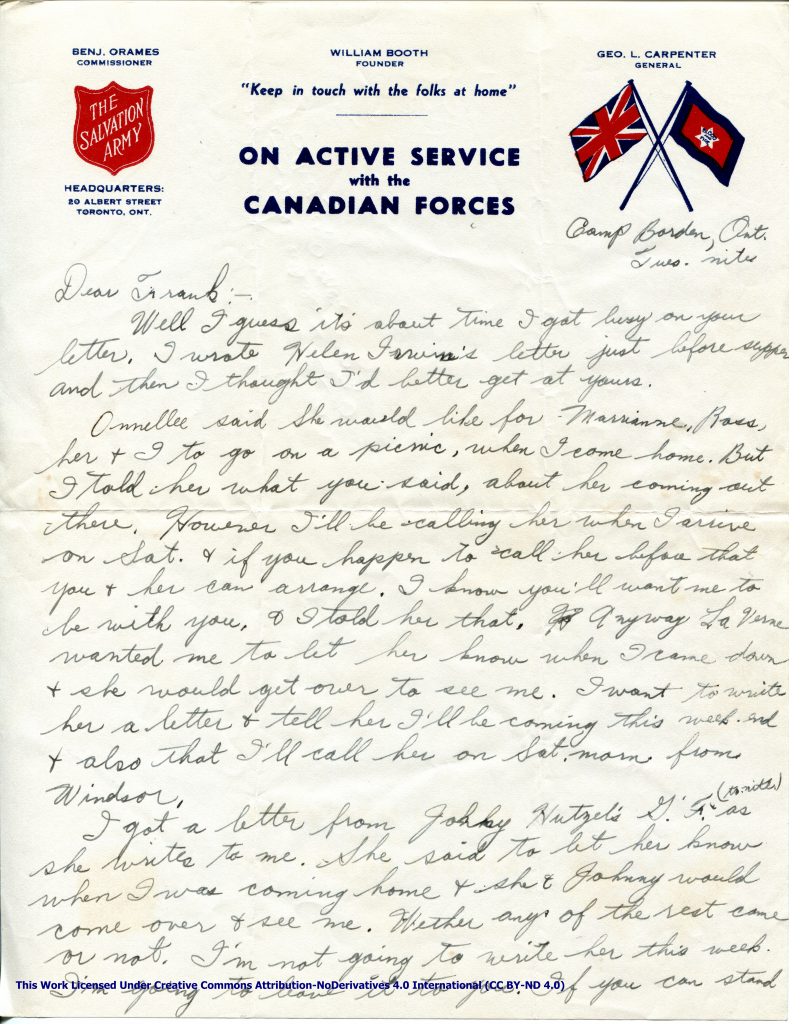 BENJ. ORAMES
COMMISSIONER
THE
SALVATION
ARMY
HEADQUARTERS:
20 ALBERT STREET
TORONTO, ONT.
WILLIAM BOOTH
FOUNDER
"Keep in touch with the folks at home"
ON ACTIVE SERVICE
with the
CANADIAN FORCES
GEO. L. CARPENTER
GENERAL
Camp Borden, Ont.
Tues. nite
Dear Frank:-
Well I guess it's about time I got busy on your
letter. I wrote Helen Irwin's letter just before supper
and then I thought I'd better get at yours.
Onnellee said She would like for Marrianne, Ross,
her & I to go on a picnic, when I come home. But
I told her what you said, about her coming out
there. However I'll be calling her when I arrive
on Sat. & if you happen to call her before that
you & her can arrange. I know you'll want me to
be with you. & I told her that. Anyway La Verne
wanted me to let her know when I came down
& she would get over to see me. I want to write
her a letter & tell her I'll be coming this week-end
& also that I'll call her on Sat. morn from
Windsor.
I got a letter from Johhy Hutzel's G. F. (to-nite) as
she writes to me. She said to let her know
when I was coming home & she & Johnny would
come over & see me. Wether any of the rest came
or not. I'm not going to write her this week.
I'm going to leave it to you. If you can stand
This Work Licensed Under Creative Commons Attribution-NoDerivatives 4.0 International (CC BY-ND 4.0)